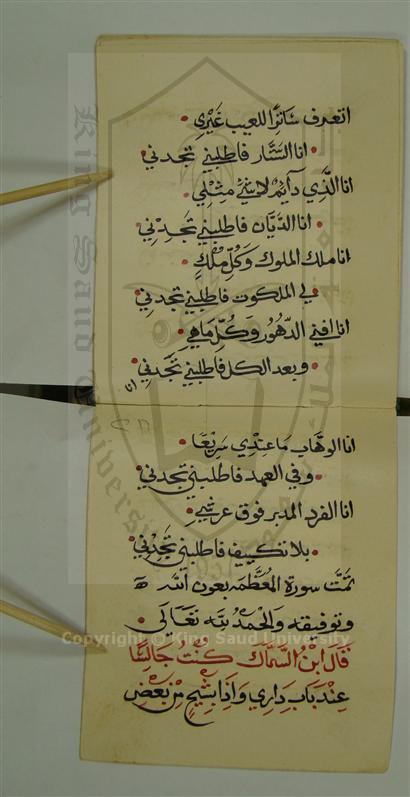 اتعرف ساترا للعيب غيري
انا الستار فاطلبني تجدني
انا الذي دايم لا شئ مثلي
انا الديان فاطلبني تجدني
انا ملك الملوك وكل ملك
لي الملكوت فاطلبني تجدني
انا افني الدهور وكل ما هي
وبعد الكل فاطلبني تجدني
انا
انا الوهاب ما عندي سريعا
وفي العهد فاطلبني تجدني
انا الفرد المدبر فوق عرشي
بلا تكييف فاطلبني تجدني
تمت سورة المعظمه بعون الله
وتوفيقه والحمد لله تعالى
قال ابن السماك كنت جالسا
عند باب داري واذا بشيخ من بعض
Copyright © King Saud University
King Saud University